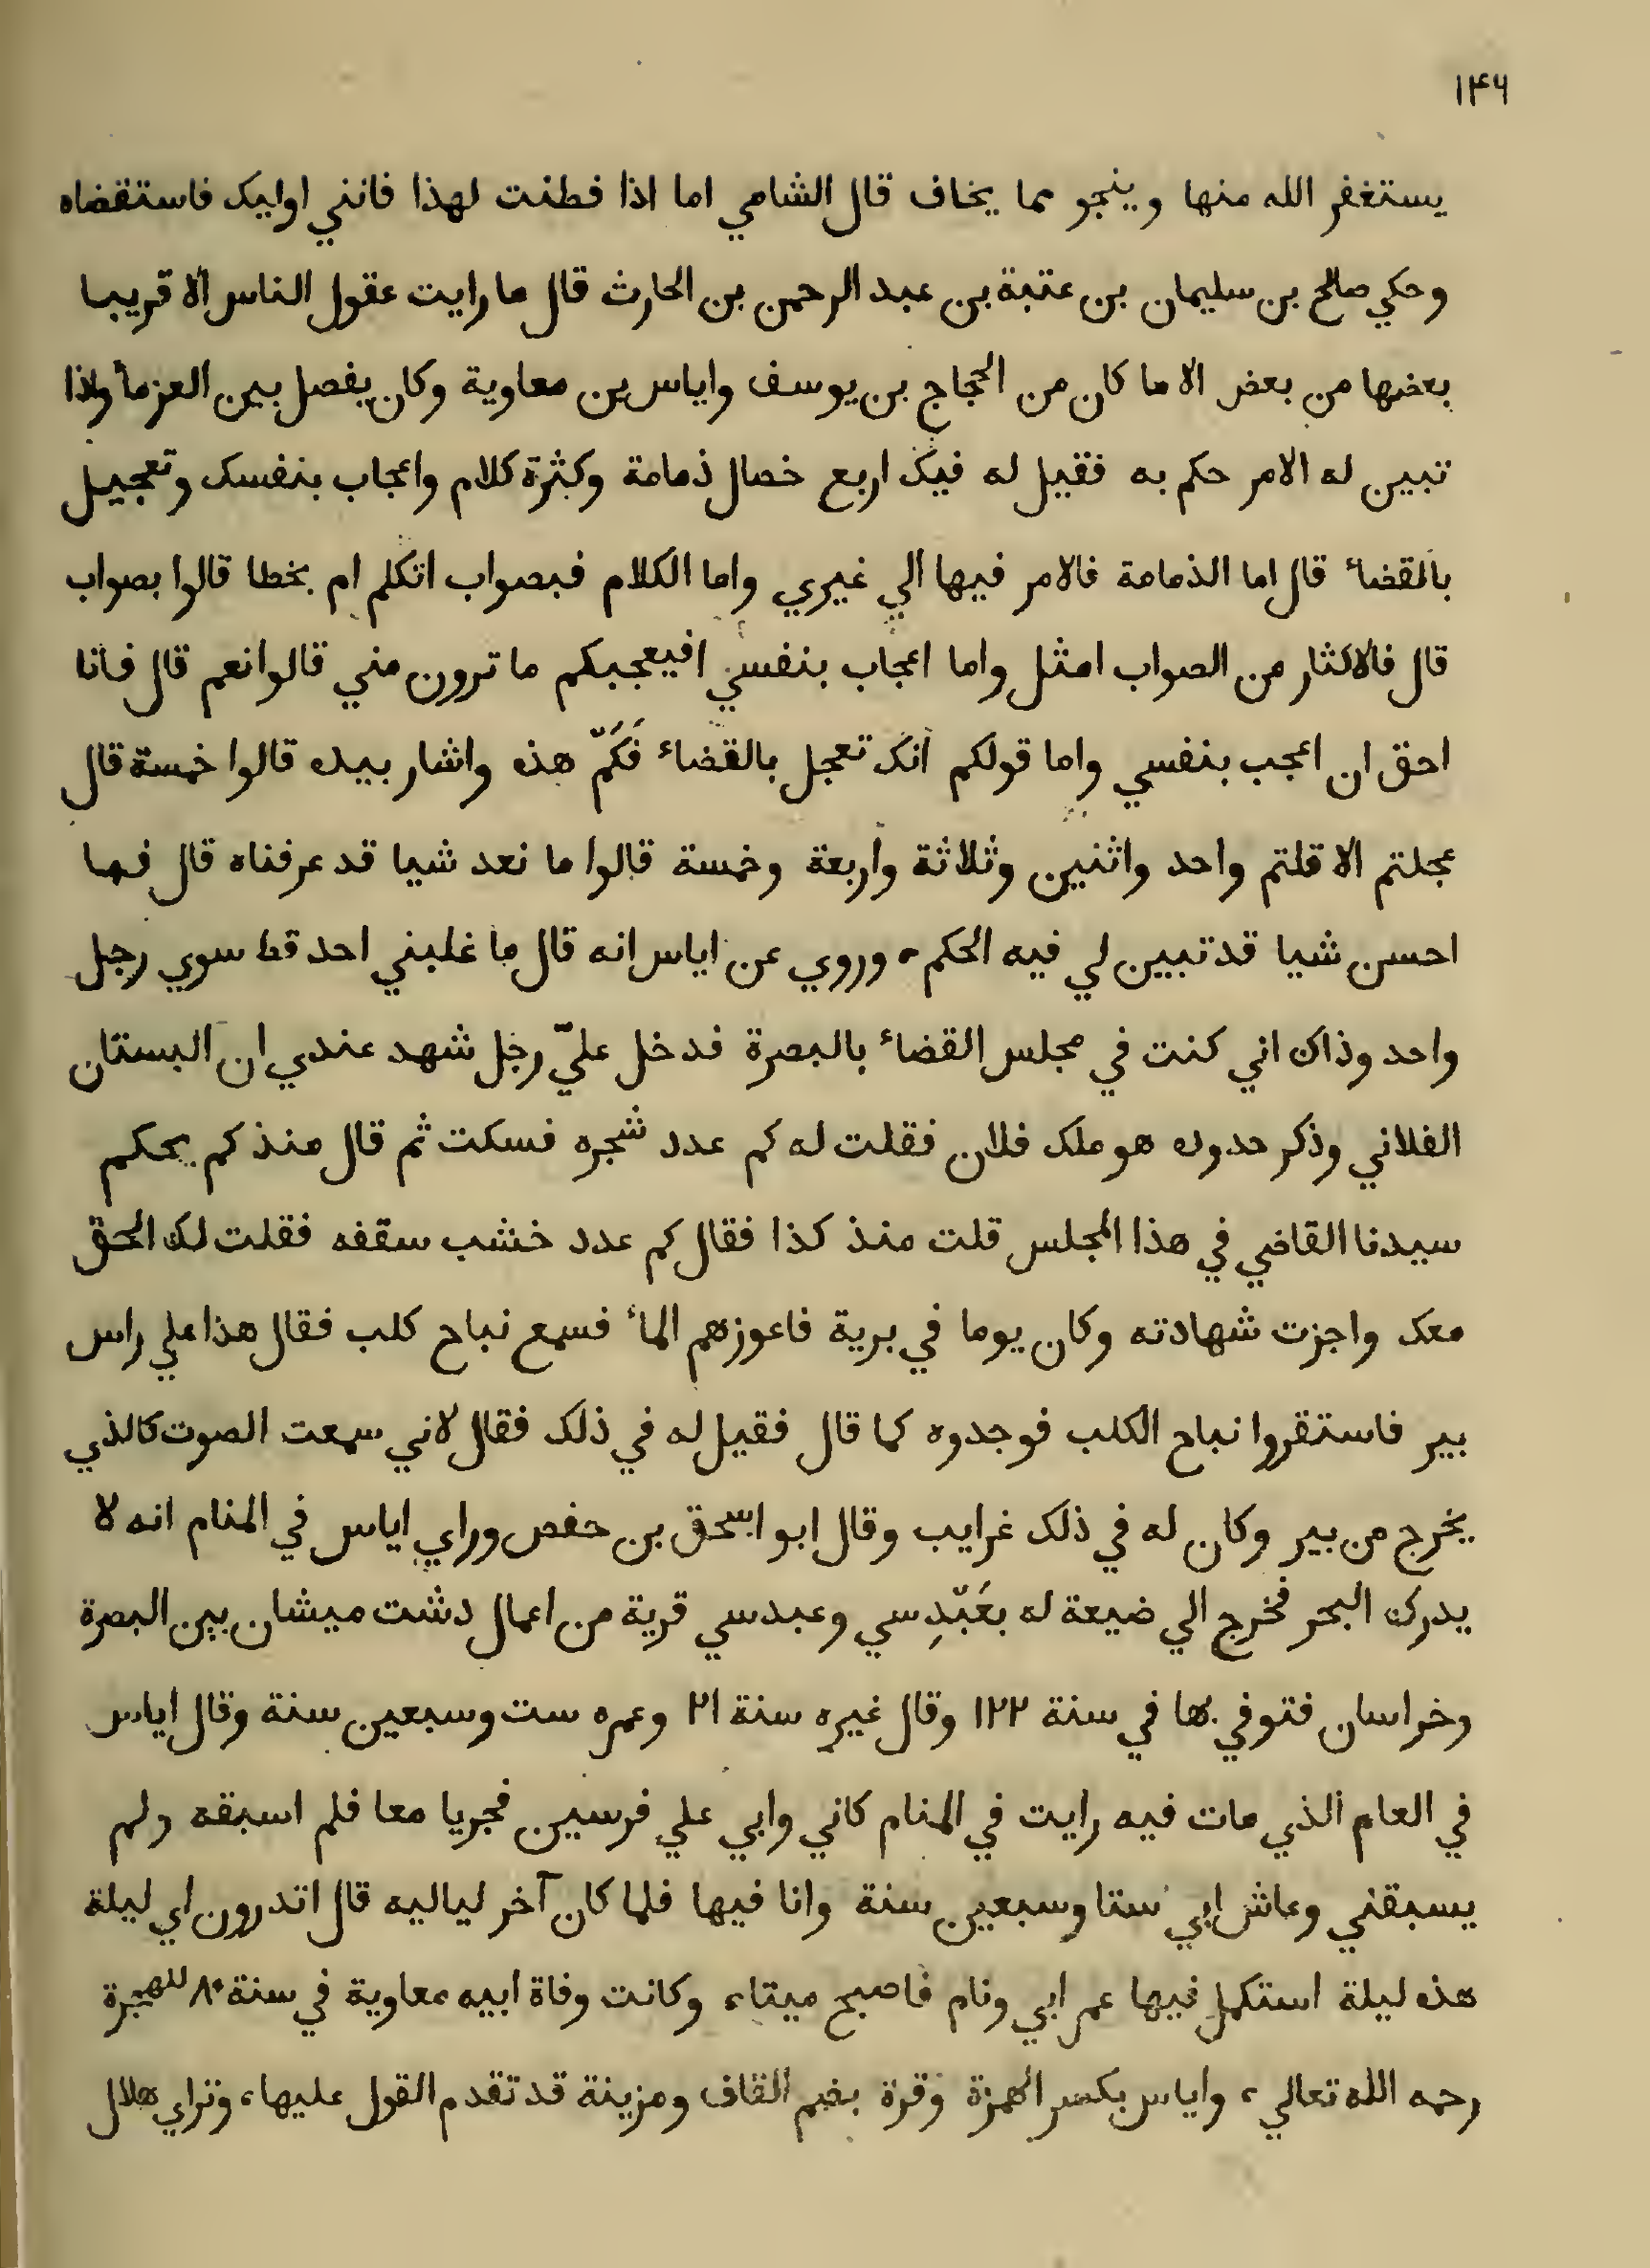 ۱۴۶
يستغفر الله منها وينجو مما يخاف قال الشامي اما اذا فطنت لهذا فانني اوليك فاستقضاه
وحكي صالح بن سليمان بن عتبة بن عبد الرحمن بن الحارث قال ما رايت عقول الناس الا قريبا
بعضها من بعض الا ما كان من الحجاج بن يوسف واياس بن معاوية وكان يفصل بين الغرماء واذا
تبين له الامر حكم به فقيل له فيك اربع خصال ذمامة وكثرة كلام واعجاب بنفسك وتعجيل
بالقضاء قال اما الذمامة فالامر فيها الي غيري واما الكلام فبصواب اتكلم ام بخطا قالوا بصواب
قال فالاكثار من الصواب امثل واما اعجاب بنفسي افيعجبكم ما ترون مني قالوا نعم قال فانا
احق ان اعجب بنفسي واما قولكم انك تعجل بالقضاء فَكَمّ هذه واشار بيده قالوا خمسة قال
عجلتم الا قلتم واحد واثنين وثلاثة واربعة وخمسة قالوا ما نعد شيا قد عرفناه قال فما
احسن شيا قد تبين لي فيه الحكم، وروي عن اياس انه قال ما غلبني احد قط سوي رجل
واحد وذاك اني كنت في مجلس القضاء بالبصرة فدخل عليّ رجل شهد عندي ان البستان
الفلاني وذكر حدوده هو ملك فلان فقلت له كم عدد شجره فسكت ثم قال منذ كم يحكم
سيدنا القاضي في هذا المجلس قلت منذ كذا فقال كم عدد خشب سقفه فقلت لك الحق
معك واجزت شهادته وكان يوما في برية فاعوزهم الماء فسمع نباح كلب فقال هذا علي راس
بير فاستقروا نباح الكلب فوجدوه كما قال فقيل له في ذلك فقال لاني سمعت الصوت كالذي
يخرج من بير وكان له في ذلك غرايب وقال ابو اسحق بن حفص وراي اياس في المنام انه لا
يدرك البحر فخرج الي ضيعة له بعَبّدِسي وعبدسي قرية من اعمال دشت ميشان بين البصرة
وخراسان فتوفي بها في سنة ۱۲۲ وقال غيره سنة ۲۱ وعمره ست وسبعين سنة وقال اياس
في العام الذي مات فيه رايت في المنام كاني وابي علي فرسين فجريا معا فلم اسبقه ولم
يسبقني وعاش ابي ستا وسبعين سنة وانا فيها فلما كان آخر لياليه قال اتدرون اي ليلة
هذه ليلة استكمل فيها عمر ابي ونام فاصبح ميتا، وكانت وفاة ابيه معاوية في سنة ۸۰ للهجرة
رحمه الله تعالي، واياس بكسر الهمزة وقرة بضم القاف ومزينة قد تقدم القول عليها، وتراي هلال